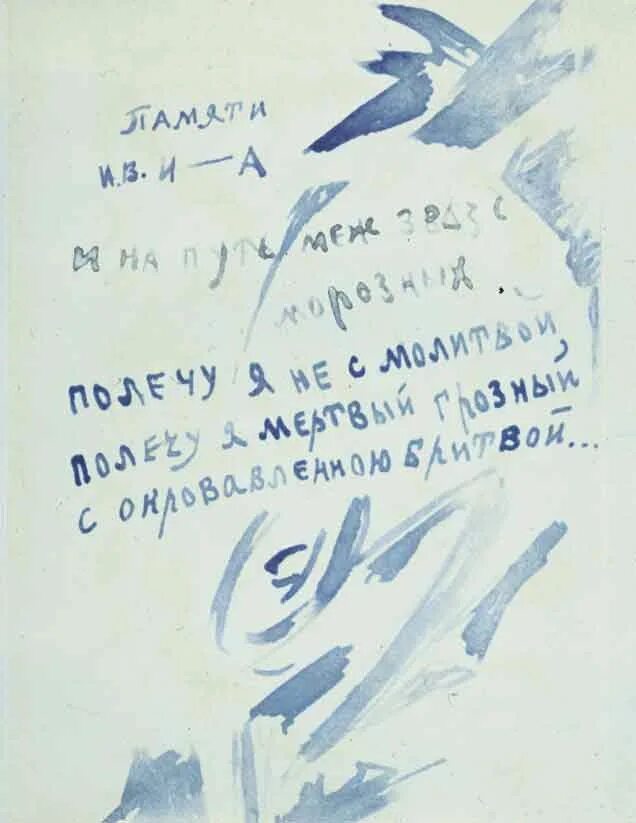 ПАМЯТИ
И.В. И—А
И НА ПУТЬ МЕЖ
МОРОЗНЫХ
ПОЛЕЧУ Я НЕ С МОЛИТВОЙ,
ПОЛЕЧУ Я МЕРТВЫЙ ГРОЗНЫЙ
С ОКРОВАВЛЕННОЮ БРИТВОЙ...